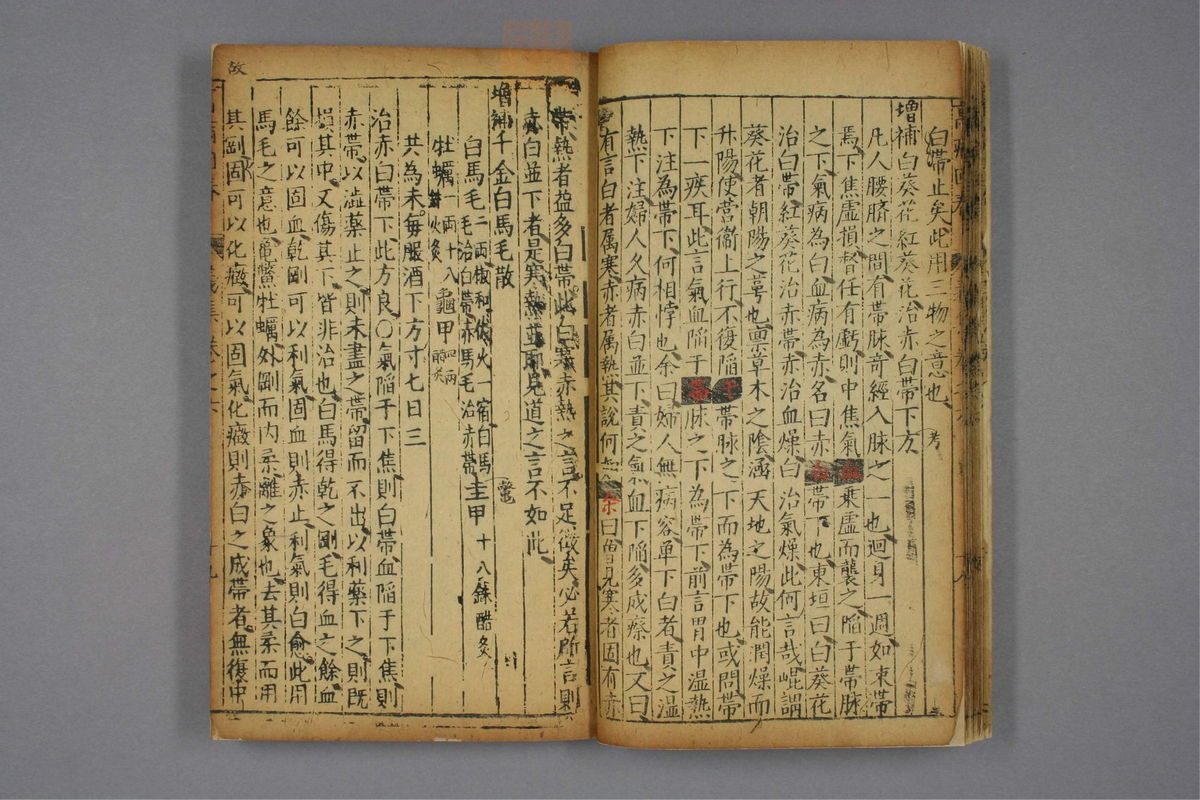 白帶止矣此用三物之意也
增補白葵花紅葵花治赤白帶下方
凡人腰臍之間有帶脉奇經八脉之一也迴身一週如束帶
焉下焦虛損督任有虧則中焦氣血乘虛而襲之陷于帶脉
之下氣病為白血病為赤名曰赤白帶下也東垣曰白葵花
治白帶紅葵花治赤帶赤治血燥白治氣燥此何言哉崐謂
葵花者朝陽之草也禀草木之陰涵天地之陽故能潤燥而
升陽使營衛上行不復陷于帶脉之下而為帶下也或問帶
下一疾耳此言氣血陷于帶脉之下為帶下前言胃中濕熱
下注為帶下何相悖也余曰婦人無病容單下白者責之濕
熱下注婦人久病赤白並下責之氣血下陷多成瘵也又曰
有言白者属寒赤者属熱其說何如余曰曾見寒者固有赤
帶熱者益多白帶此白寒赤熱之言不足徵矣必若所言則
赤白並下者是寒熱並耶見道之言不如此
增補千金白馬毛散
白馬毛二兩椒和伏火一宿白馬毛治白帶赤馬毛治赤帶
鱉甲十八銖酷炙
牡蠣一兩十八銖火炙
龜甲四兩酷炙
共為末每服酒下方寸七日三
治赤白帶下此方良○氣陷于下焦則白帶血陷于下焦則
赤帶以澁藥止之則未盡之帶留而不出以利藥下之則既
損其中又傷其下皆非治也白馬得乾之剛毛得血之餘血
餘可以固血乾剛可以利氣固血則赤止利氣則白愈此用
馬毛之意也龜鱉牡蠣外剛而內柔離之象也去其柔而用
其剛固可以化癥可以固氣化癥則赤白之成帶者無復中